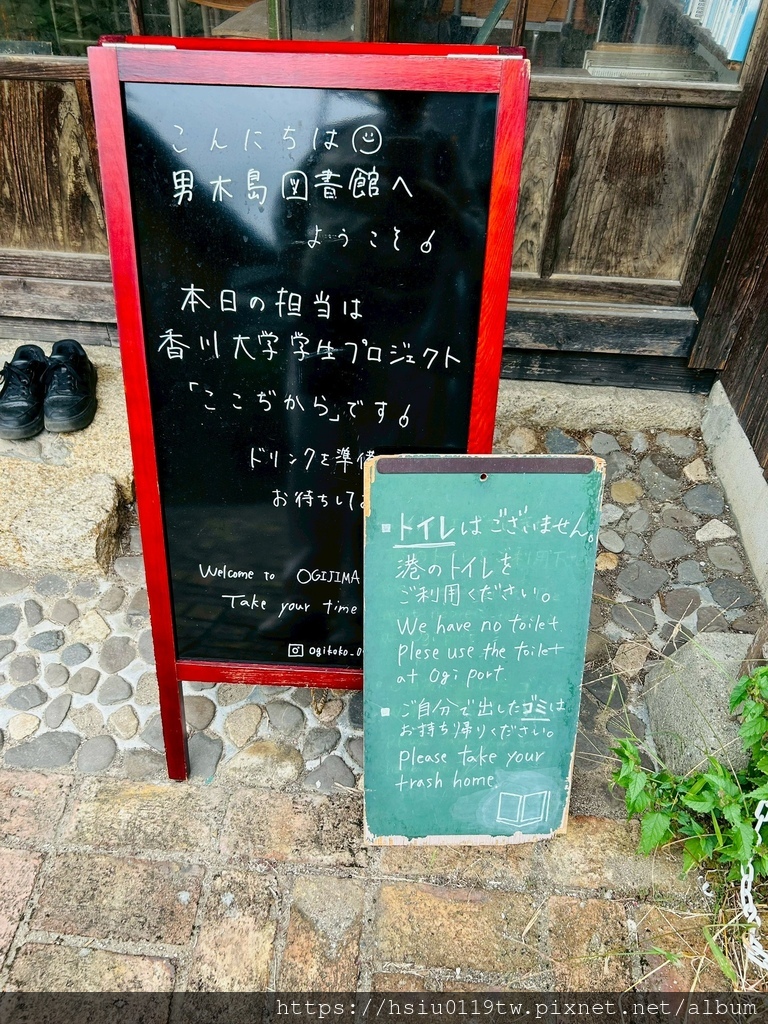 こんにちは
男木島図書館へ
ようこそ
本日の担当は
香川大学学生プロジェクト
「ここぢから」です
ドリンクを準備
お待ちして
Welcome to OGIJIMA
Take your time
ogikoko_
トイレはございません。
港のトイレを
ご利用ください。
We have no toilet
plese use the toilet
at Ogi port.
ご自分で出したゴミは
お持ち帰りください。
please take your
trash home.
https://hsiu0119tw.pixnet.net/album